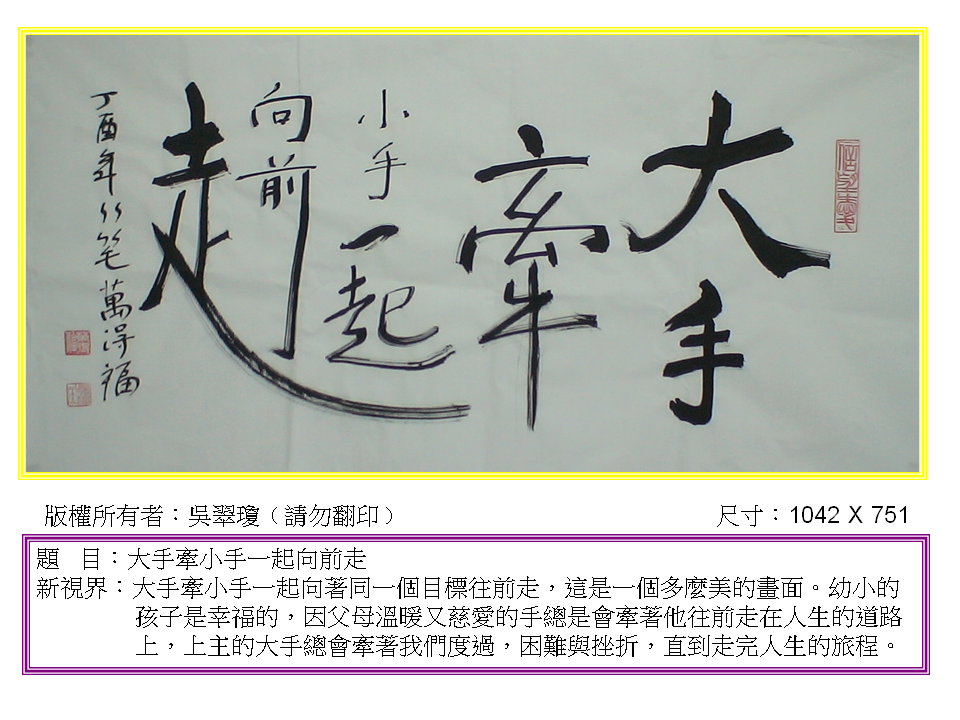 大手
牽
小手一起
向前
走
丁酉年竹笔萬得福
版權所有者：吳翠瓊（請勿翻印）
尺寸：1042 X 751
題　目：大手牽小手一起向前走
新視界：大手牽小手一起向著同一個目標往前走，這是一個多麼美的畫面。幼小的
孩子是幸福的，因父母溫暖又慈愛的手總是會牽著他往前走在人生的道路
上，上主的大手總會牽著我們度過，困難與挫折，直到走完人生的旅程。